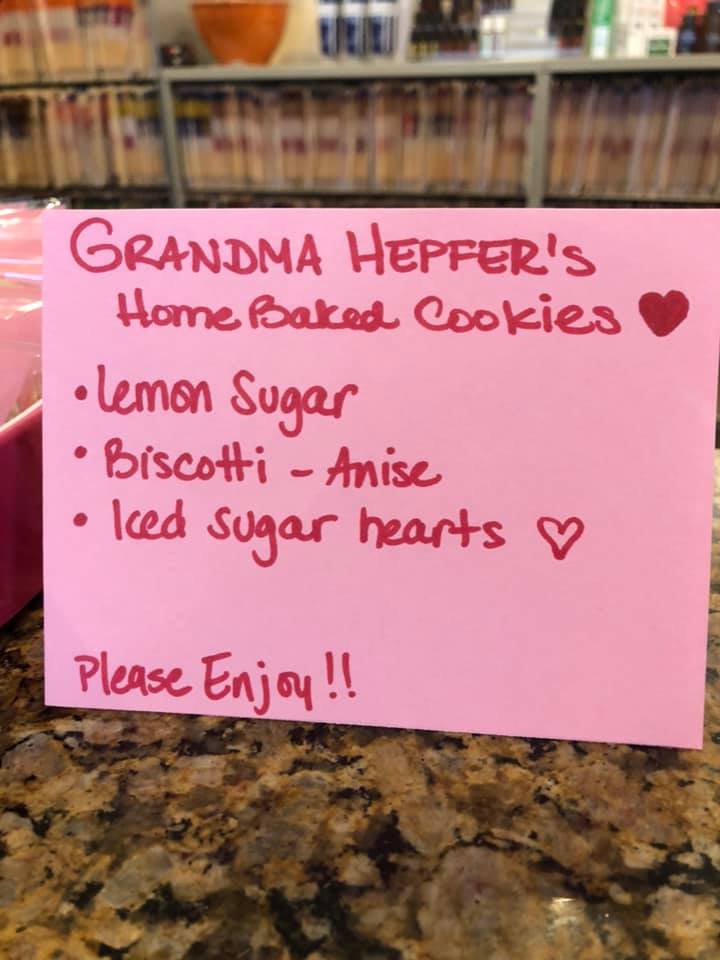 GRANDMA HEPFER'S
Home Baked Cookies ♥
• Lemon Sugar
• Biscotti - Anise
• Iced sugar hearts ♡
Please Enjoy!!